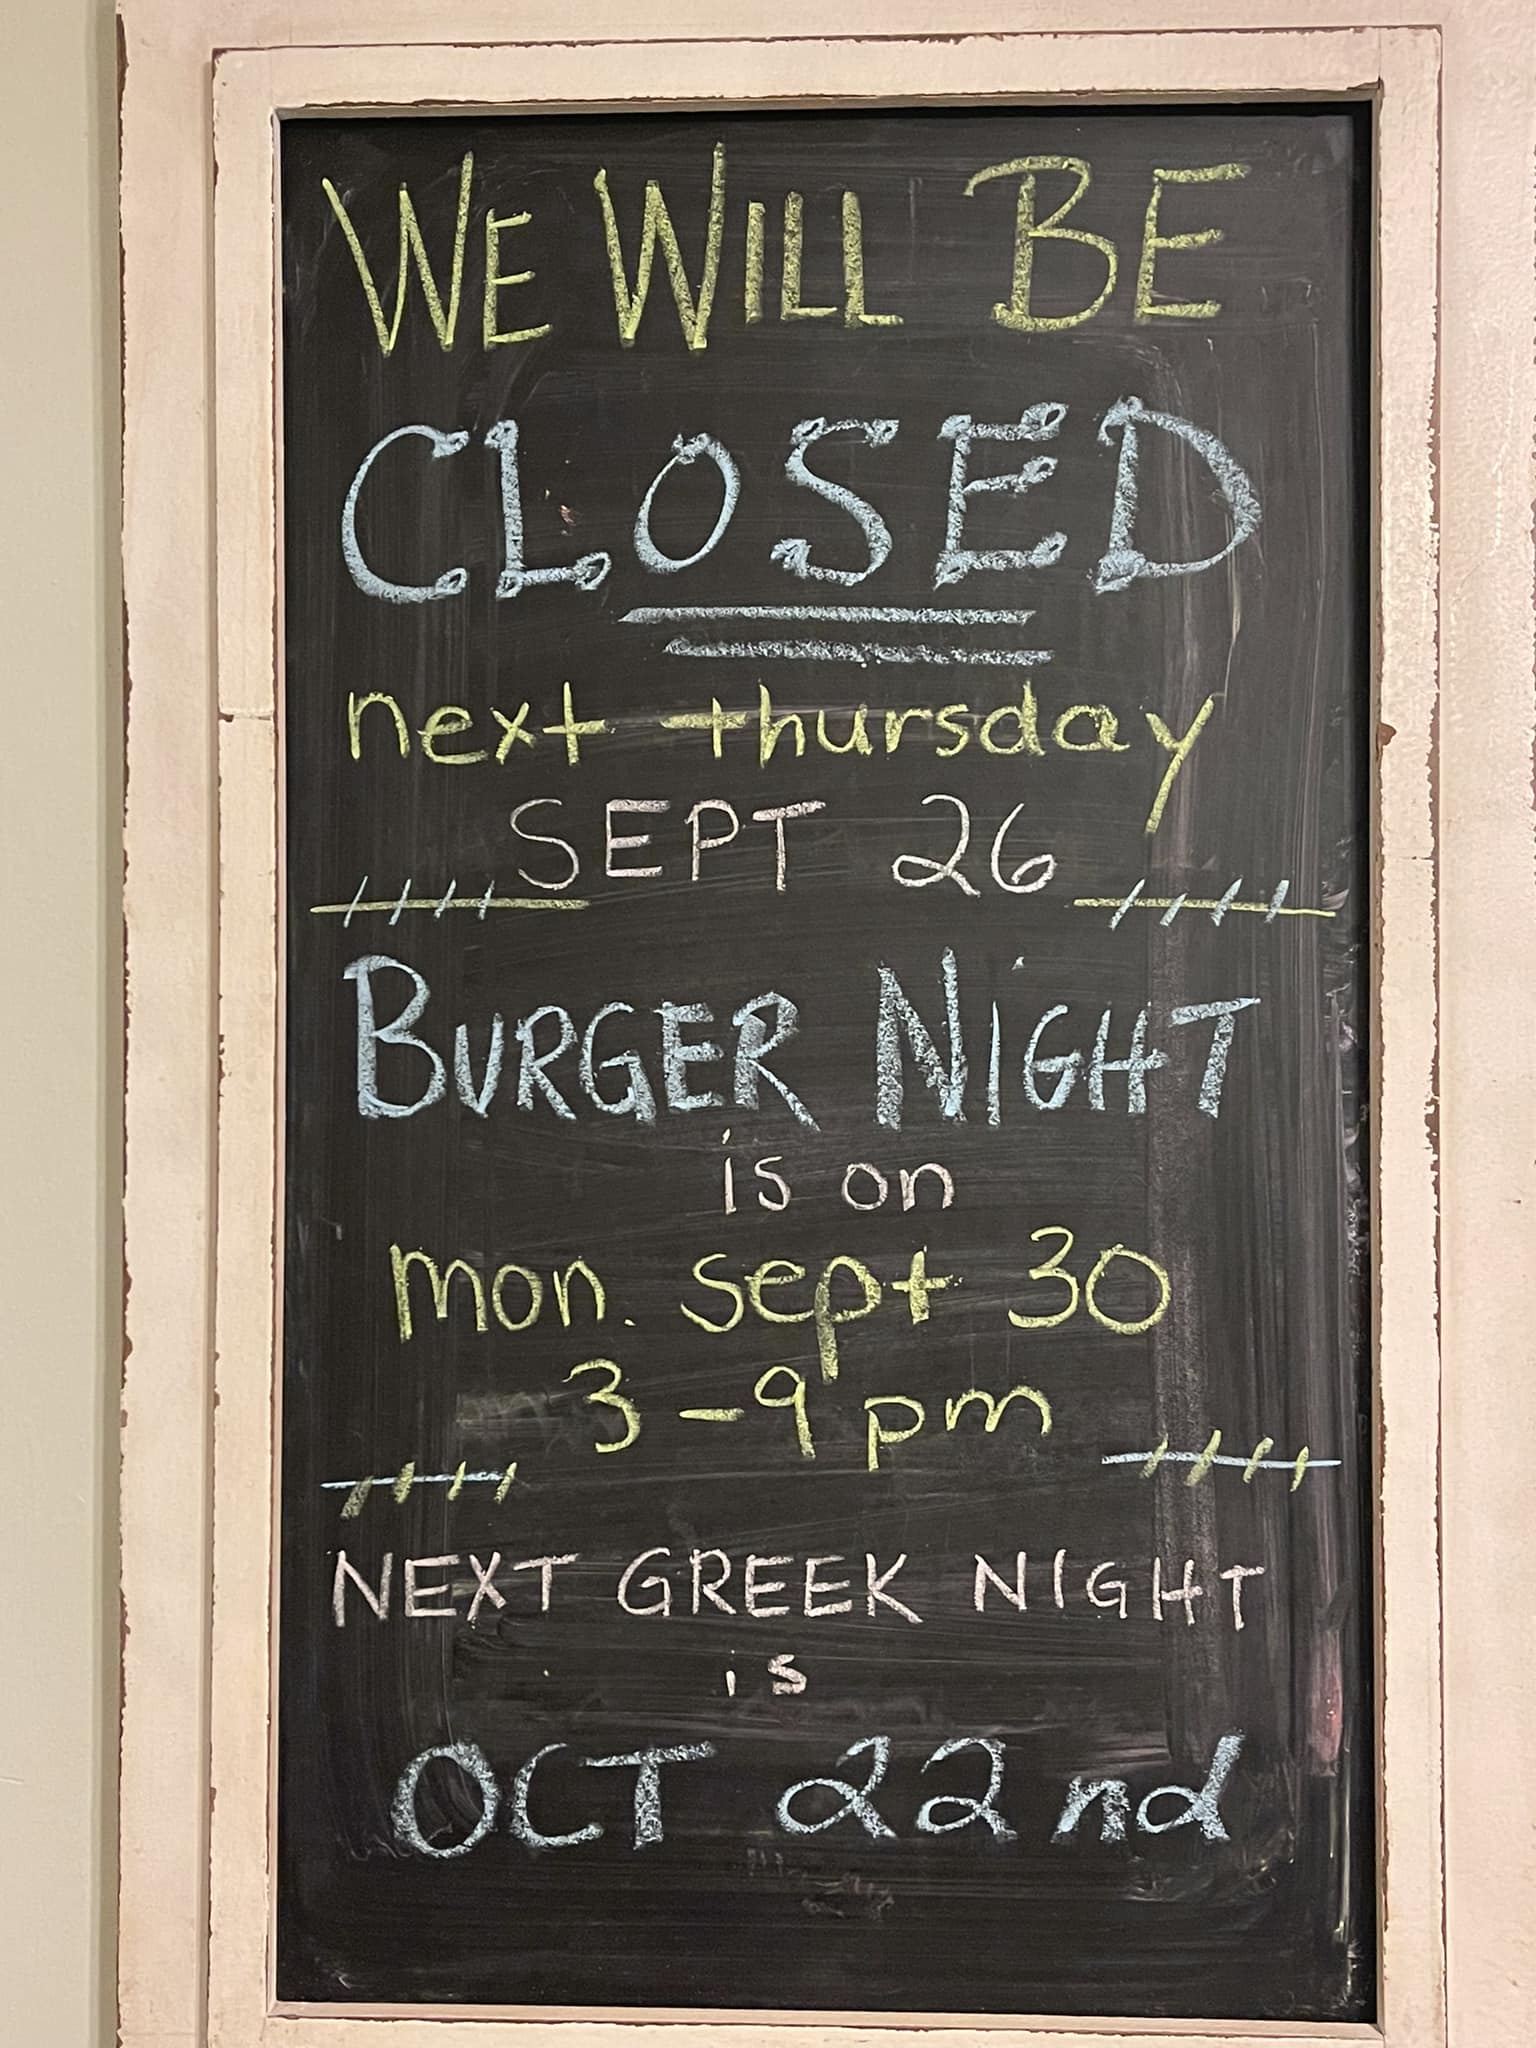 WE WILL BE
CLOSED
next thursday
SEPT 26
BURGER NIGHT
is on
mon. sept 30
3 - 9 pm
NEXT GREEK NIGHT
is
OCT 22nd